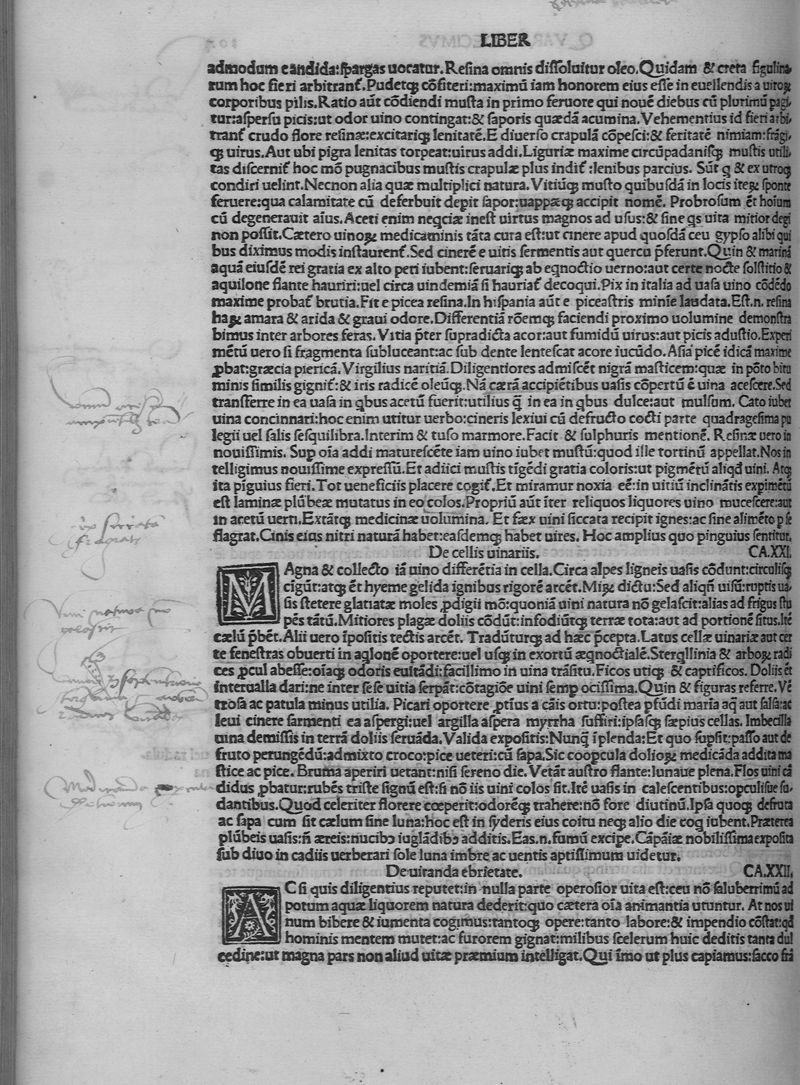 LIBER
admodum candida:spargas uocatur.Resina omnis dissoluitur oleo.Quidam & creta figulina⸗
rum hoc fieri arbitrant̃.Pudetqꝫ cõfiteri:maximũ iam honorem eius esse in euellendis a uiroꝝ
corporibus pilis.Ratio aũt cõdiendi musta in primo feruore qui nouẽ diebus cũ plurimũ pagi⸗
tur:aspersu picis:ut odor uino contingat:& saporis quædã acumina.Vehementius id fieri arbi⸗
trant̃ crudo flore resinæ:excitariqꝫ lenitatẽ.E diuerso crapulã cõpesci:& feritatẽ nimiam:frãgi⸗
qꝫ uirus.Aut ubi pigra lenitas torpeat:uirus addi.Liguriæ maxime circũpadanisqꝫ mustis utili⸗
tas discernit̃ hoc mõ pugnacibus mustis crapulæ plus indit̃:lenibus parcius. Sũt q & ex utroqꝫ
condiri uelint.Necnon alia quæ multiplici natura.Vitiũqꝫ musto quibusdã in locis iteꝝ sponte
feruere:qua calamitate cũ deferbuit depit sapor:uappæqꝫ accipit nomẽ. Probrosum ẽt hoium
cũ degenerauit aĩus.Aceti enim neqciæ inest uirtus magnos ad usus:& sine qs uita mitior degi
non possit.Cætero uinoꝝ medicaminis tãta cura est:ut cinere apud quosdã ceu gypso alibi qui
bus diximus modis instaurent̃.Sed cinerẽ e uitis sermentis aut quercu p̃ferunt.Quin & marinã
aquã eiusdẽ rei gratia ex alto peti iubent:seruariqꝫ ab eqnoctio uerno:aut certe nocte solstitio &
aquilone flante hauriri:uel circa uindemiã si hauriat̃ decoqui.Pix in italia ad uasa uino cõdẽdo
maxime probat̃ brutia.Fit e picea resina.In hispania aũt e piceastris minie laudata.Est.n.resina
haꝝ amara & arida & graui odore.Differentiã rõemqꝫ faciendi proximo uolumine demonstra
bimus inter arbores feras.Vitia p̃ter supradicta acor:aut fumidũ uirus:aut picis adustio.Experi
mẽtũ uero si fragmenta subluceant:ac sub dente lentescat acore iucũdo.Asia picẽ idicã maxime
ꝓbat:græcia piericã.Virgilius naritiã.Diligentiores admiscẽt nigrã masticem:quæ in põto bitu
minis similis gignit̃:& iris radicẽ oleũqꝫ.Nã cærã accipiẽtibus uasis cõpertũ ẽ uina acescere.Sed
transferre in ea uasa in qbus acetũ fuerit:utilius q̃ in ea in qbus dulce:aut mulsum. Cato iubet
uina concinnari:hoc enim utitur uerbo:cineris lexiui cũ defructo cocti parte quadragesima pu
legii uel salis sesquilibra.Interim & tuso marmore.Facit & sulphuris mentionẽ. Resinæ uero in
nouissimis. Sup oĩa addi maturescẽte iam uino iubet mustũ:quod ille tortinũ appellat.Nos in
telligimus nouissime expressũ.Et adiici mustis tĩgẽdi gratia coloris:ut pigmẽtũ aliqd uini. Atqꝫ
ita pĩguius fieri.Tot ueneficiis placere cogit̃.Et miramur noxia eẽ:in uitiũ inclinãtis expimẽtũ
est laminæ plũbeæ mutatus in eo colos.Propriũ aũt ĩter reliquos liquores uino mucescere:aut
in acetũ uerti.Extãtqꝫ medicinæ uolumina. Et fæx uini siccata recipit ignes:ac sine alimẽto p se
flagrat.Cinis eius nitri naturã habet:easdemqꝫ habet uires. Hoc amplius quo pinguius sentitur.
De cellis uinariis. CA.XXI.
MAgna & collecto iã uino differẽtia in cella.Circa alpes ligneis uasis cõdunt:circulisqꝫ
cigũt:atqꝫ ẽt hyeme gelida ignibus rigorẽ arcẽt.Miꝝ dictu:Sed aliqñ uisũ:ruptis ua⸗
sis stetere glatiatæ moles ꝓdigii mõ:quoniã uini natura nõ gelascit:alias ad frigus stu
pẽs tãtũ.Mitiores plagæ doliis cõdũt:infodiũtqꝫ terræ tota:aut ad portionẽ situs.Itẽ
cælũ p̃bẽt.Alii uero ĩpositis tectis arcẽt. Tradũturqꝫ ad hæc p̃cepta.Latus cellæ uinariæ aut cer
te fenestras obuerti in aglonẽ oportere:uel usqꝫ in exortũ æqnoctialẽ.Sterqllinia & arboꝝ radi
ces ꝓcul abesse:oĩaqꝫ odoris euitãdi:facillimo in uina trãsitu.Ficos utiqꝫ & captificos. Doliis ẽt
interualla dari:ne inter sese uitia serpãt:cõtagiõe uini semp ocissima.Quin & figuras referre.Vẽ
trosa ac patula minus utilia. Picari oportere ꝓtĩus a cãis ortu:postea pfũdi maria aq̃ aut salsa:ac
leui cinere sarmenti ea aspergi:uel argilla aspera myrrha suffiri:ipsasqꝫ sæpius cellas. Imbecilla
uina demissis in terrã doliis seruãda.Valida expositis:Nunq̃ ĩplenda:Et quo supsit:passo aut de
fruto perungẽdũ:admixto croco:pice ueteri:cũ sapa.Sic coopcula dolioꝝ medicãda addita ma
stice ac pice. Bruma aperiri uetant:nisi sereno die.Vetãt austro flante:lunaue plena.Flos uini cã
didus ꝓbatur:rubẽs triste signũ est:si nõ iis uini colos sit.Itẽ uasis in calescentibus:opculisue su⸗
dantibus.Quod celeriter florere cœperit:odorẽqꝫ trahere:nõ fore diutinũ.Ipsa quoqꝫ defruta
ac sapa cum sit cælum sine luna:hoc est in syderis eius coitu neqꝫ alio die coq iubent.Præterea
plũbeis uasis:ñ æreis:nucibꝯ iuglãdibꝯ additis.Eas.n.fumũ excipe.Cãpãiæ nobilissima exposita
sub diuo in cadiis uerberari sole luna imbre ac uentis aptissimum uidetur.
De uiranda ebrietate. CA.XXII.
AC si quis diligentius reputet:in nulla parte operosior uita est:ceu nõ saluberrimũ ad
potum aquæ liquorem natura dederit:quo cætera oĩa animantia utuntur. At nos ui
num bibere & iumenta cogimus:tantoqꝫ opere:tanto labore:& impendio cõstat:qđ
hominis mentem mutet:ac furorem gignat:milibus scelerum huic deditis tanta dul
cedine:ut magna pars non aliud uitæ præmium intelligat.Qui ĩmo ut plus capiamus:sacco frã